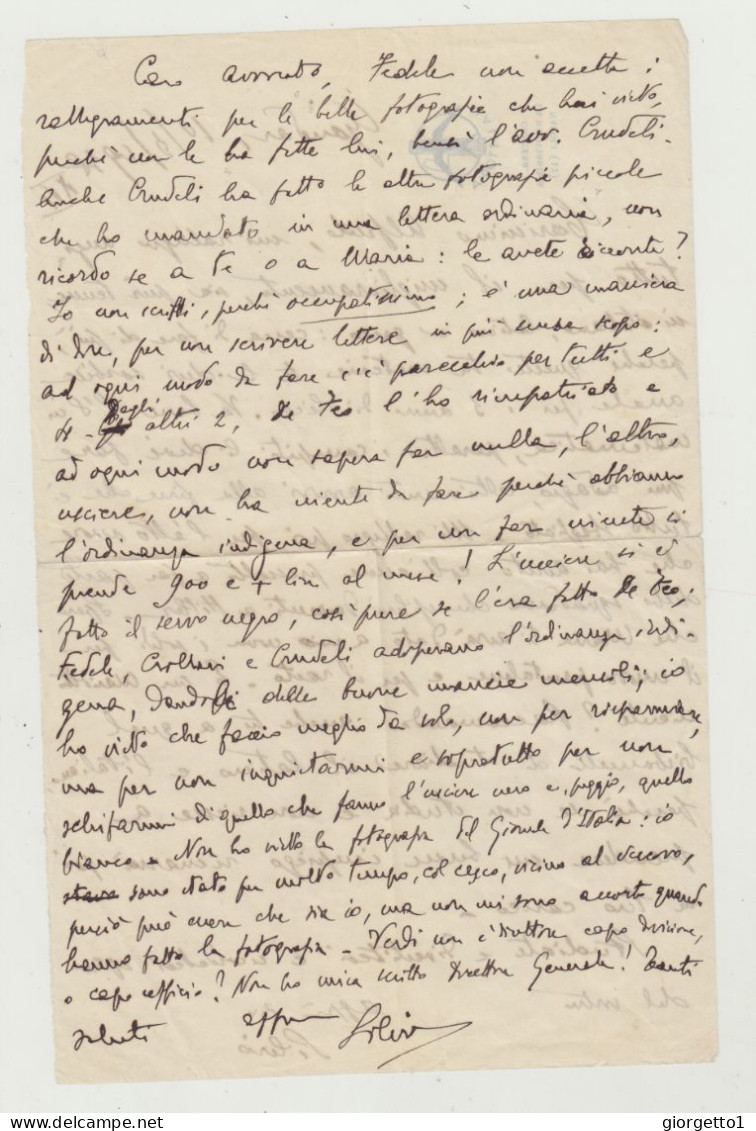 Caro avvocato, Fedele non accetta i
rallegramenti per le belle fotografie che hai visto,
perché non le ha fatte lui, bensì l'avv. Crudeli.
Anche Crudeli ha fatto le altre fotografie piccole
che ho mandato in una lettera ordinaria, non
ricordo se a te o a Maria: le avete ricevute?
Io non scrissi, perché occupatissimo; è una maniera
di dire, per non scrivere lettere in più senza scopo:
ad ogni modo da fare c'è parecchio per tutti e
4 - Degli altri 2, De Feo l'ho rimpatriato e
ad ogni modo non sapeva far nulla, l'altro,
usciere, non ha niente da fare perché abbiamo
l'ordinanza indigena, e per non far niente si
prende 900 e + lire al mese! L'usciere si è
fatto il servo negro, così pure se l'era fatto De Feo;
Fedele, e Crudeli adoperano l'ordinanza indi-
gena, dandogli delle buone mancie mensili; io
ho visto che faccio meglio da solo, non per risparmiare,
ma per non inquietarmi e sopratutto per non
schifarmi di quello che fanno l'usciere nero e, peggio, quello
bianco - Non ho visto la fotografia del Giornale d'Italia: io
sono stato per molto tempo, col casco, vicino al vescovo,
perciò può essere che sia io, ma non mi sono accorto quando
hanno fatto la fotografia - Verdi non è direttore capo divisione,
o capo ufficio? Non ho mica scritto Direttore Generale! Tanti
saluti aff.mo Silvio
giorgetto1